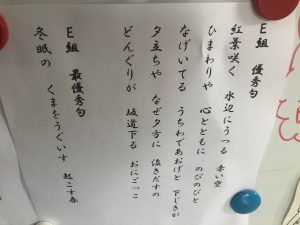 E組　優秀句
紅葉咲く　水辺にうつる　赤い空
ひまわりや　心とともに　のびのびと
なげいてる　うちわであおげと　下じきが
夕立ちや　なぜ夕方に　泣きだすの
どんぐりが　坂道下る　おにごっこ
E組　最優秀句
冬眠の　くまをうぐいす　起こす春